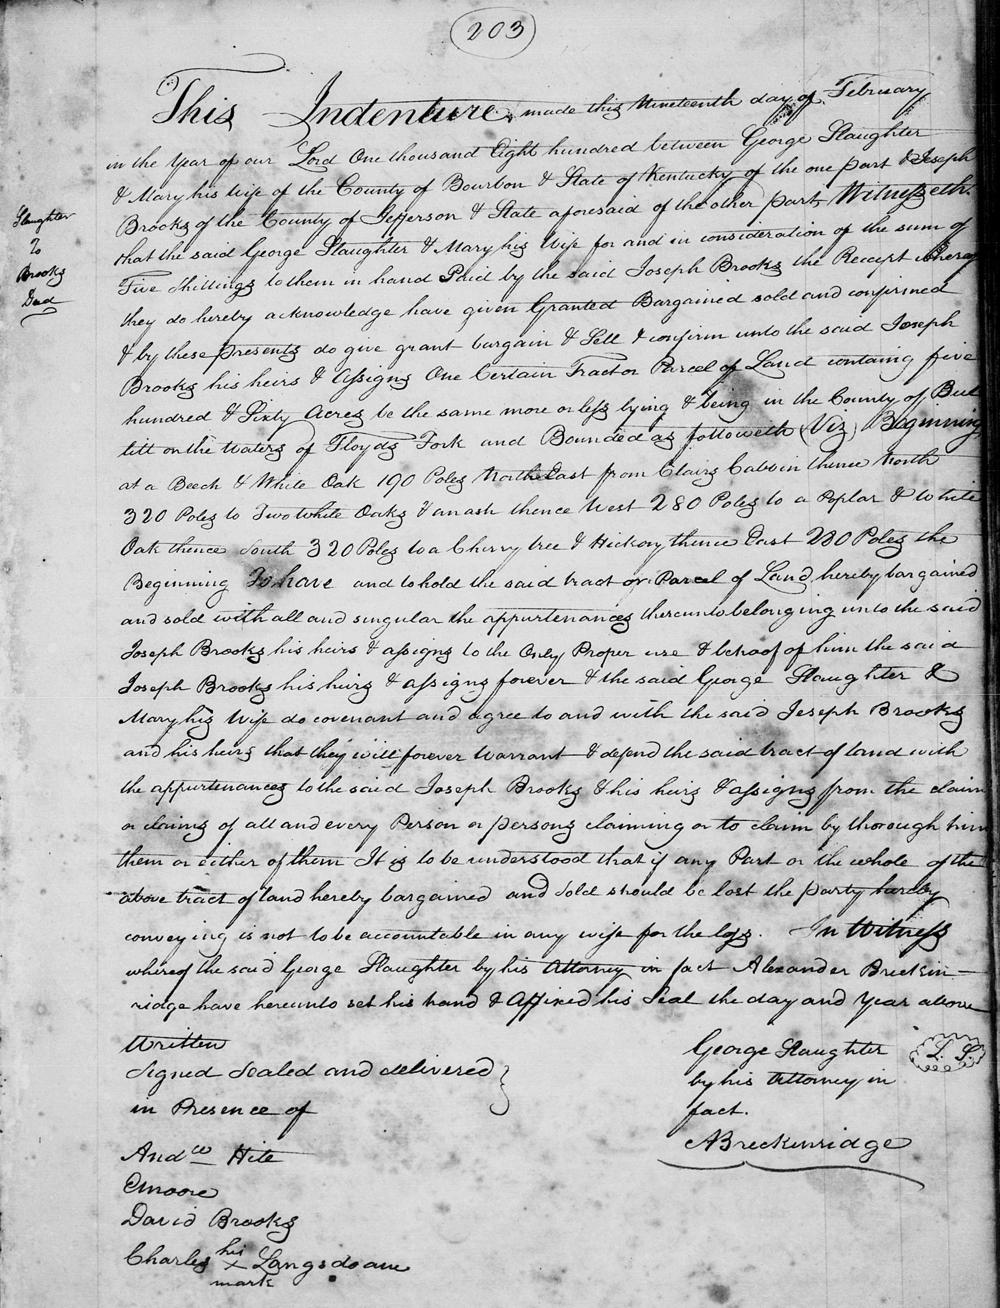 203
This Indenture, made this Nineteenth day of February
in the Year of our Lord One thousand Eight hundred between George Slaughter
& Mary his wife of the County of Bourbon & State of Kentucky of the one part & Joseph
Brooks of the County of Jefferson & State aforesaid of the other part Witnesseth
Slaughter
To
Brooks
Deed
that the said George Slaughter & Mary his Wife for and in consideration of the sum of
Five Shillings to them in hand Paid by the said Joseph Brooks the Receipt whereof
they do hereby acknowledge have given Granted Bargained sold and confirmed
& by these Presents do give grant bargain & Sell & confirm unto the said Joseph
Brooks his heirs & Assigns One Certain Tract or Parcel of Land containg five
hundred & Sixty Acres be the same more or less lying & being in the County of Bul
litt on the Waters of Floyds Fork and Bounded as followeth (Viz) Beginning
at a Beech & White Oak 190 Poles North East from Clairs Cabbin thence North
320 Poles to Two White Oaks & an ash thence West 280 Poles to a Poplar & White
Oak thence South 320 Poles to a Cherry tree & Hickory thence East 280 Poles the
Beginning To have and to hold the said tract or Parcel of Land hereby bargained
and sold with all and singular the appurtenances thereunto belonging unto the said
Joseph Brooks his heirs & assigns to the Only Proper use & behoof of him the said
Joseph Brooks his heirs & assigns forever & the said George Slaughter &
Mary his Wife do covenant and agree to and with the said Joseph Brooks
and his heirs that they will forever Warrant & defend the said tract of land with
the appurtenances to the said Joseph Brooks & his heirs & assigns from the claim
or claims of all and every Person or persons claiming or to claim by thorough him
them or either of them It is to be understood that if any Part or the whole of the
above tract of land hereby bargained and sold should be lost the party hereby
conveying is not to be accountable in any wise for the loss. In Witness
whereof the said George Slaughter by his Attorney in fact Alexander Breckin-
ridge have hereunto set his hand & Affixed his Seal the day and Year above
Written
Signed Sealed and delivered
in Presence of
George Slaughter L. S.
by his Attorney in
fact.
ABreckinridge
Andw Hite
Cmoore
David Brooks
Charles his x mark Langsdoane